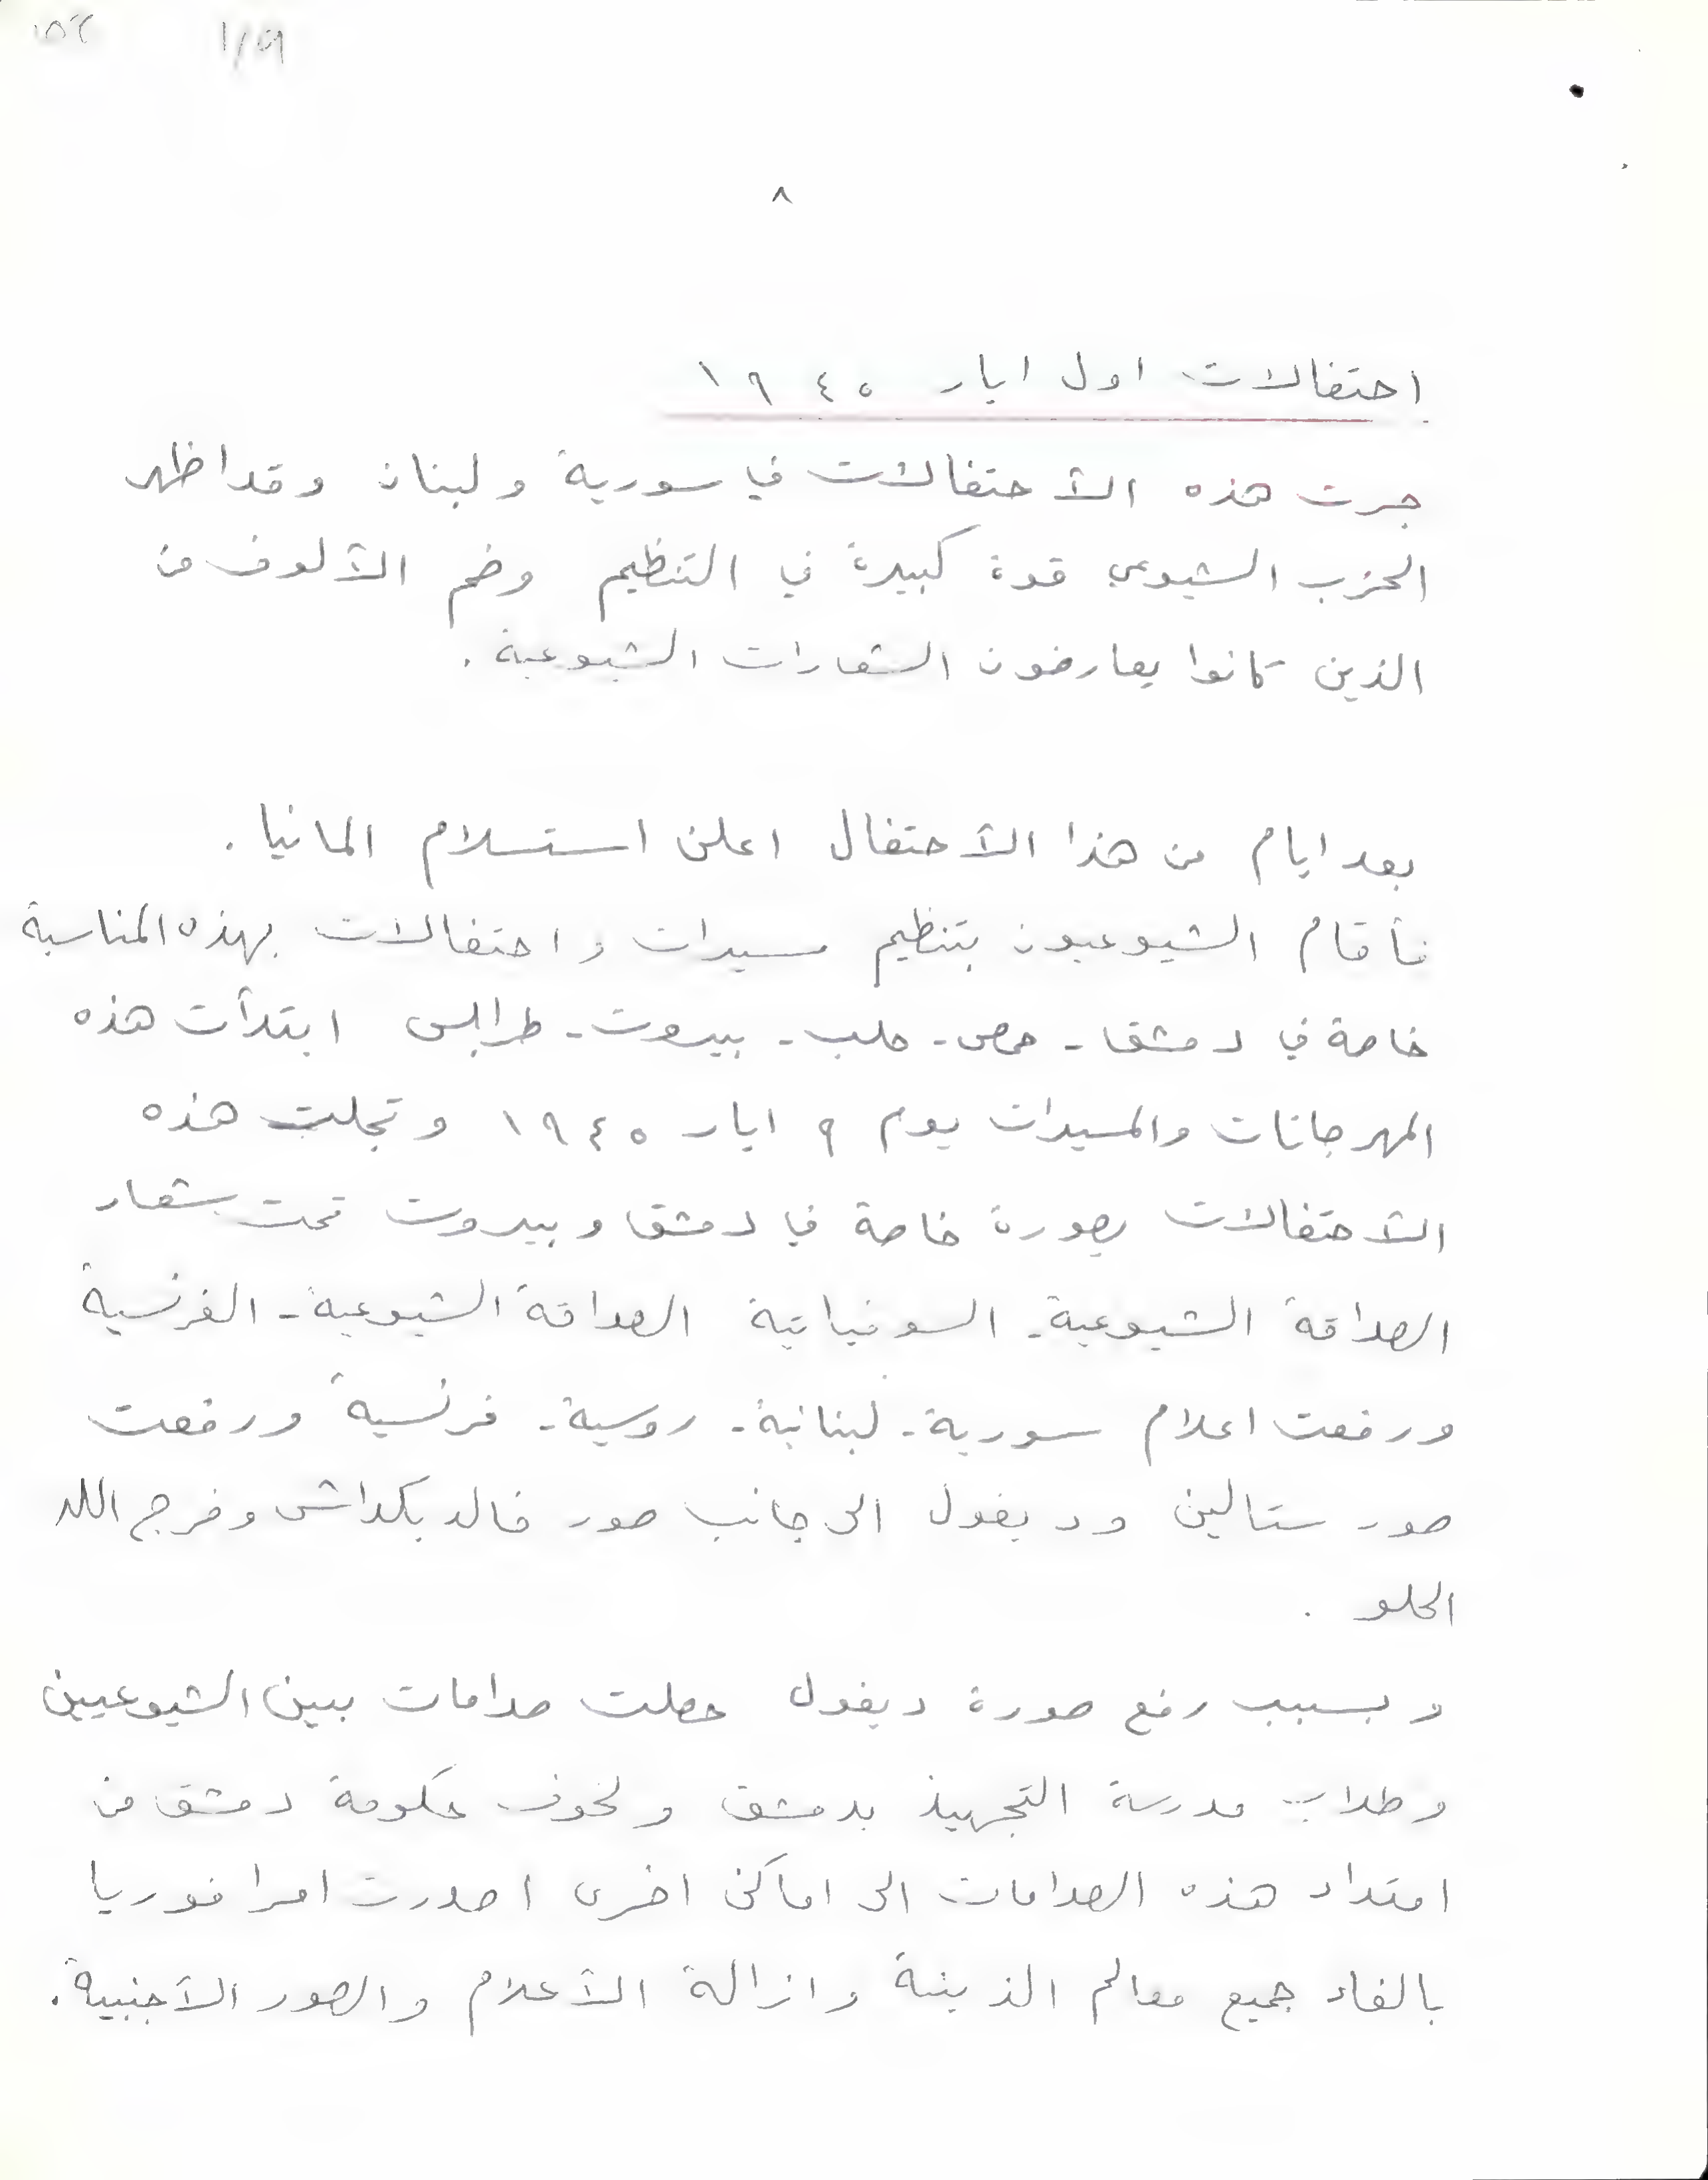 ٨
احتفالات اول ايار ١٩٤٥
جرت هذه الأحتفالات في سورية ولبنان وقد اظهر
الحزب الشيوعي قوة كبيرة في التنظيم وضم الألوف من
الذين كانوا يعارضون الشعارات الشيوعية .
بعد ايام من هذا الأحتفال اعلن استسلام المانيا .
فأقام الشيوعيون بتنظيم مسيرات واحتفالات بهذه المناسبة
خاصة في دمشق - حمص - حلب - بيروت - طرابلس ابتدأت هذه
المهرجانات والمسيرات يوم ٩ ايار ١٩٤٥ وتجلت هذه
الأحتفالات بصورة خاصة في دمشق وبيروت تحت شعار
الصداقة الشيوعية - السوفياتية الصداقة الشيوعية - الفرنسية
ورفعت اعلام سورية - لبنانية - روسية - فرنسية ورفعت
صور ستالين وديغول الى جانب صور خالد بكداش وفرج الله
الحلو .
وبسبب رفع صورة ديغول حصلت صدامات بين الشيوعيين
وطلاب مدرسة التجهيز بدمشق ولخوف حكومة دمشق من
امتداد هذه الصدامات الى اماكن اخرى اصدرت امرا فوريا
بالغاء جميع معالم الزينة وازالة الأعلام والصور الأجنبية .